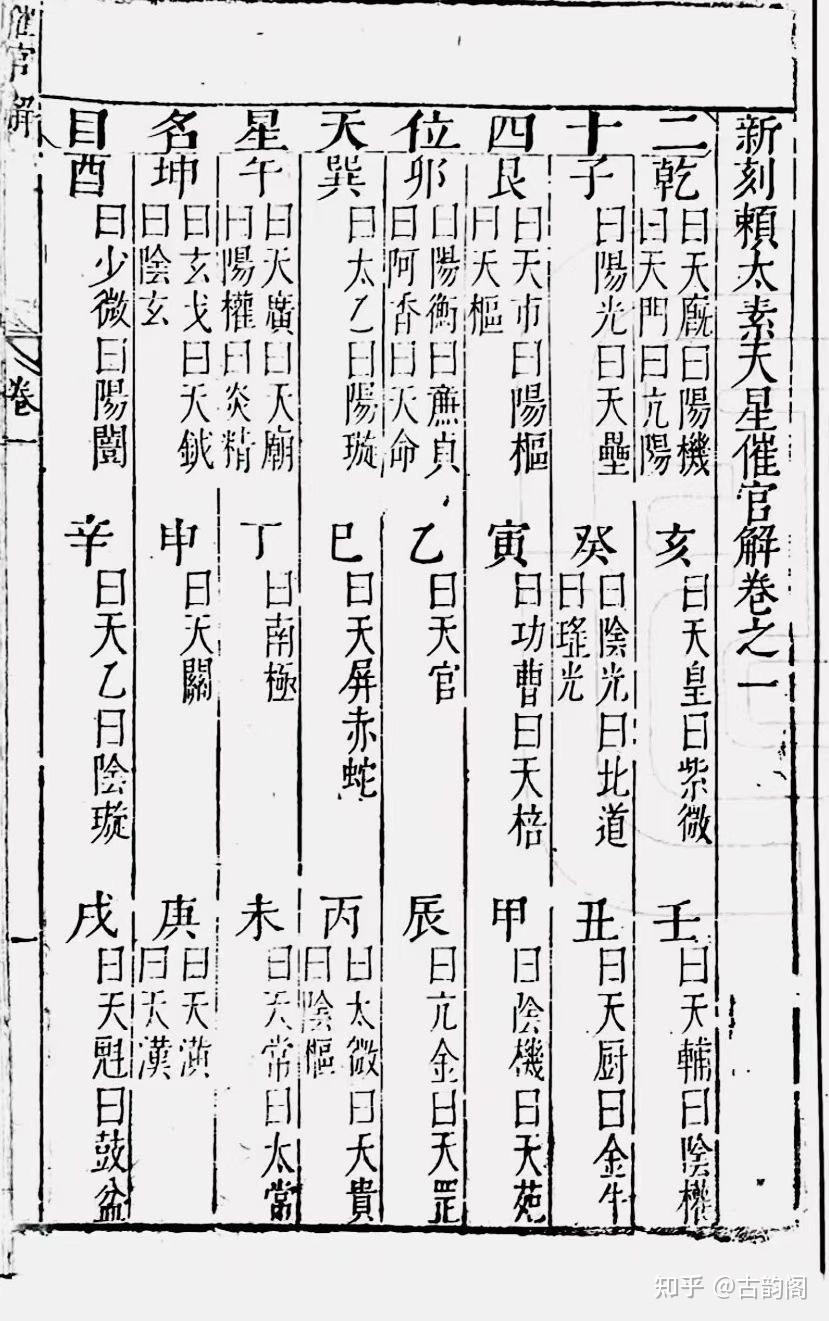 新刻頼太素天星催官解卷之一
二十四位天星名目
乾 曰天廐曰陽機曰天門曰亢陽
亥 曰天皇曰紫微
壬 曰天輔曰陰權
子 曰陽光曰天壘
癸 曰陰光曰北道曰瑤光
丑 曰天厨曰金牛
艮 曰天市曰陽樞曰天樞
寅 曰功曹曰天棓
甲 曰陰機曰天苑
卯 曰陽衡曰亷貞曰阿香曰天命
乙 曰天官
辰 曰亢金曰天罡
巽 曰太乙曰陽璇
巳 曰天屏赤蛇
丙 曰太微曰天貴曰陰樞
午 曰天廣曰天廟曰陽權曰炎精
丁 曰南極
未 曰天常曰太常
坤 曰玄戈曰天鉞曰陰玄
申 曰天關
庚 曰天潢曰天漢
酉 曰少微曰陽闓
辛 曰天乙曰陰璇
戌 曰天魁曰鼓盆
催官解
卷一
一
知乎 @古韵阁